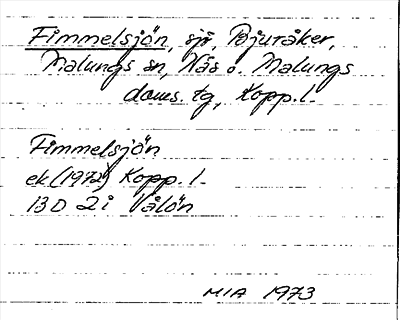 Fimmelsjön, sjö, Bjuråker,
Malungs sn, Nås o. Malungs
doms. tg, Kopp. l.
Fimmelsjön
ek (1972) Kopp. l.
13 D 2 i Vålön
MIA 1973